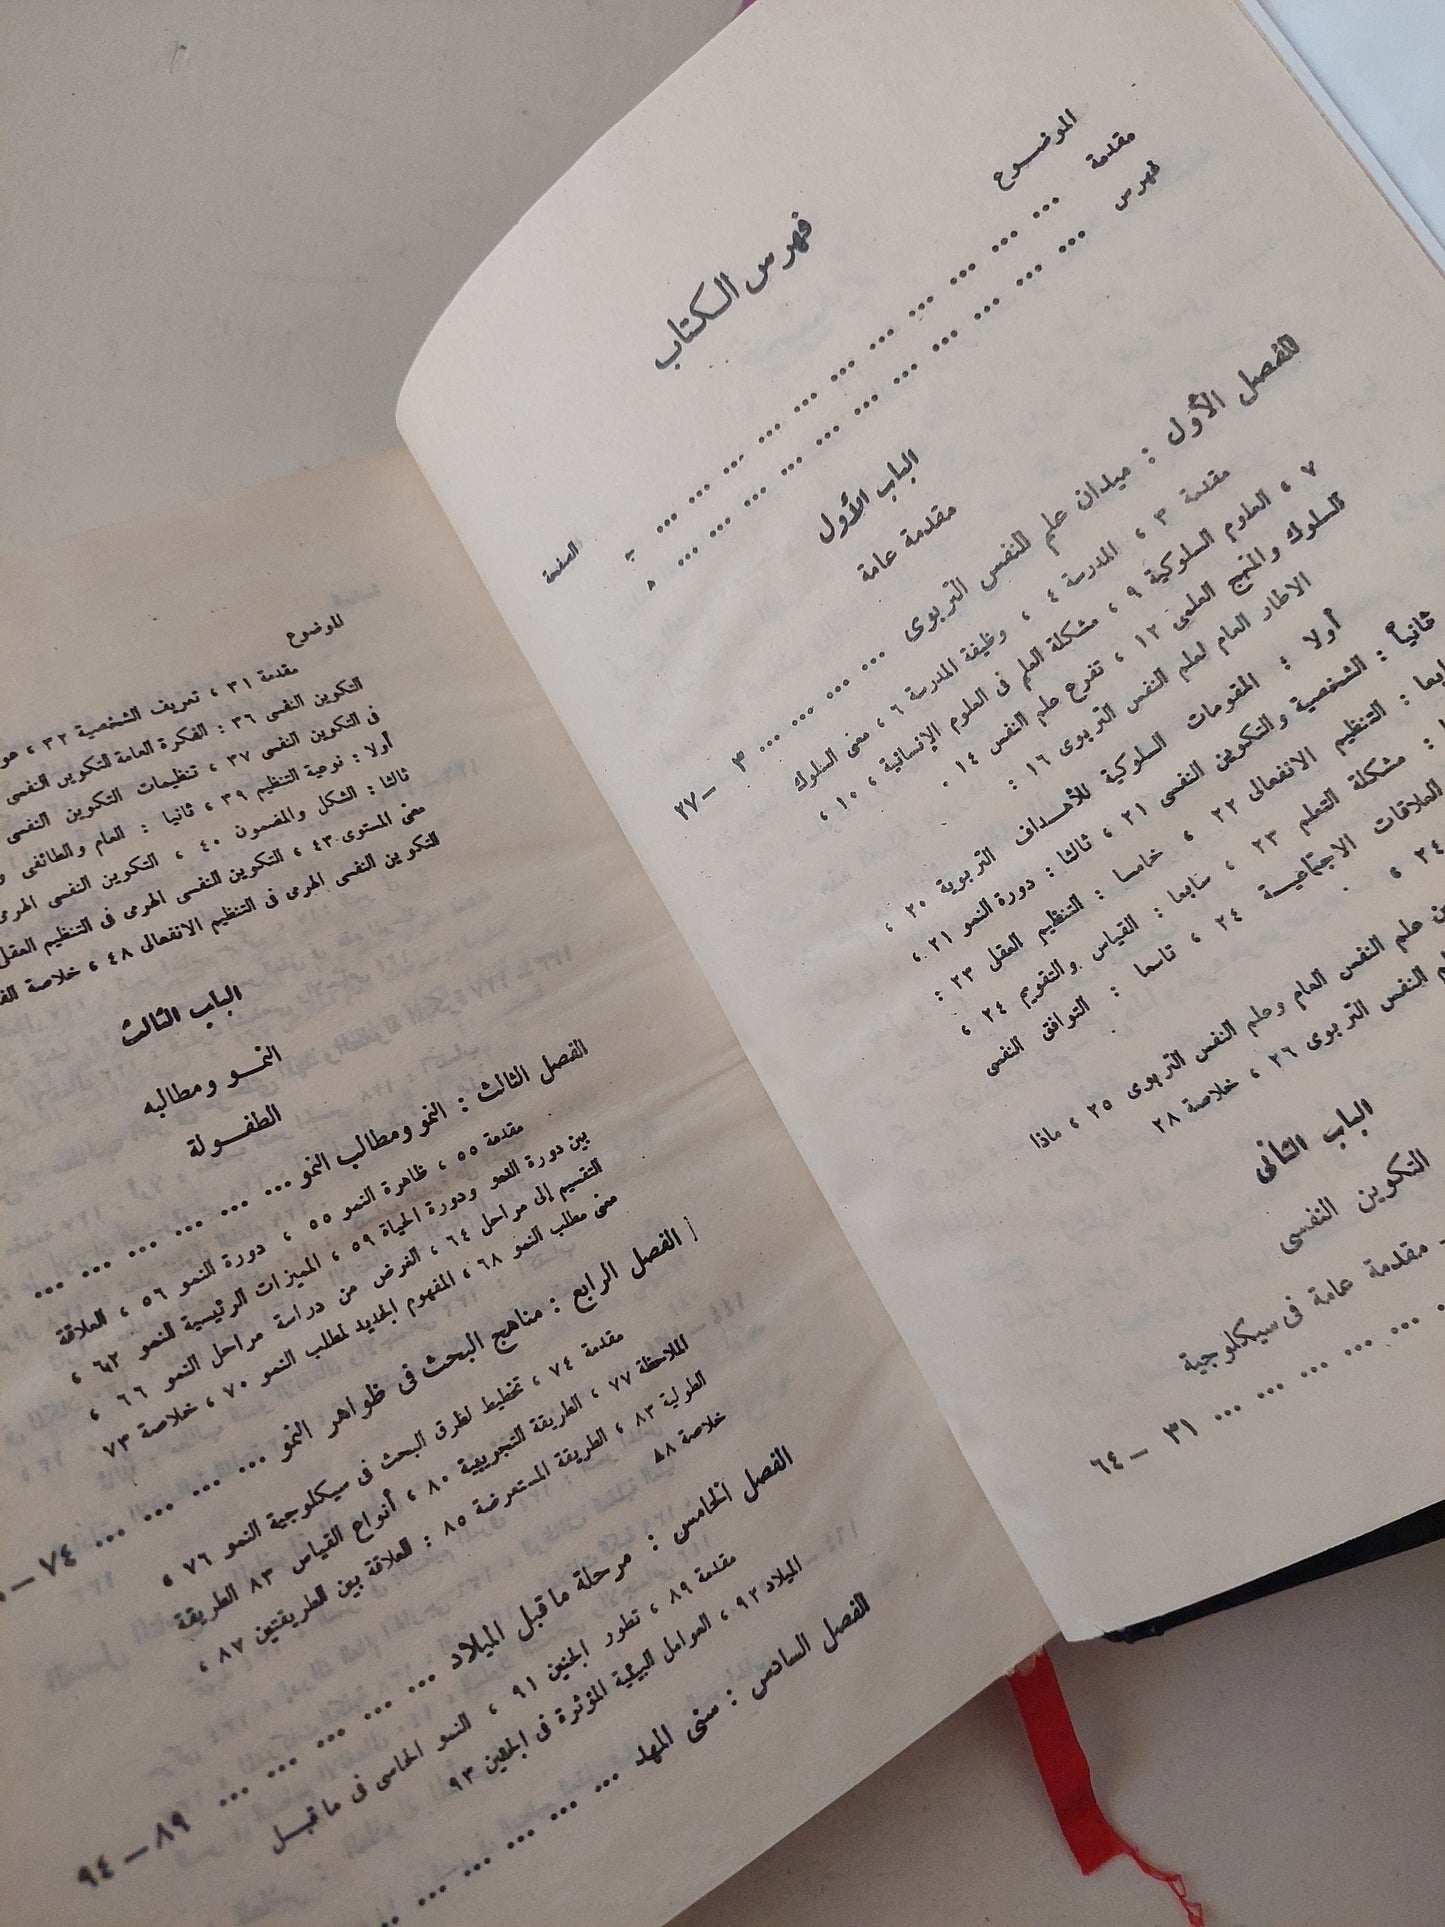 فهرس الكتاب
الموضـوع
الصفحة
مقدمة ... ... ... ... ... ... ... ... ... ... ...
فهرس ... ... ... ... ... ... ... ... ... ... ... ٥
الباب الأول
مقدمة عامة
الفصل الأول : ميدان علم النفس التربوى ... ... ... ... ٣ — ٢٧
مقدمة ٣ ، المدرسة ٤ ، وظيفة المدرسة ٦ ، معنى السلوك
٧ ، العلوم السلوكية ٩ ، مشكلة العلم فى العلوم الإنسانية ١٠ ،
السلوك والمنهج العلمى ١٢ ، تفرع علم النفس ١٤ .
الاطار العام لعلم النفس التربوى ١٦ :
أولا : المقومات السلوكية للأهداف التربوية ٢٠ ،
ثانياً : الشخصية والتكوين النفسى ٢١ ، ثالثا : دورة النمو ٢١ ،
: التنظيم الانفعالى ٢٢ ، خامسا : التنظيم العقلى ٢٣ :
: مشكلة التعلم ٢٣ ، سابعا : القياس والتقويم ٢٤ ،
العلاقات الاجتماعيـة ٢٤ ، تاسعا : التوافق النفسى
٢٤ ،
علم النفس العام وعلم النفس التربوى ٢٥ ، ماذا
النفس التربوى ٢٦ ، خلاصة ٢٨
الباب الثانى
التكوين النفسى
مقدمة عامة فى سيكلوجية
... ... ... ... ... ٣١ — ٦٤
الموضوع
مقدمة ٣١ ، تعريف الشخصية ٣٢ ،
التكوين النفسى ٣٦ : الفكرة العامة للتكوين النفسى
فى التكوين النفسى ٣٧ ، تنظيمات التكوين النفسى
أولا : نوعية التنظيم ٣٩ ، ثانيا : العام والطائفى
ثالثا : الشكل والمضمون ٤٠ ، التكوين النفسى الهرمى
معنى المستوى ٤٣ ، التكوين النفسى الهرمى فى التنظيم العقلى
التكوين النفسى الهرمى فى التنظيم الانفعالى ٤٨ ، خلاصة
الباب الثالث
النمـو ومطالبه
الطفـولة
الفصل الثالث : النمو ومطالب النمو ... ... ... ... ... ... ...
مقدمة ٥٥ ، ظاهرة النمو ٥٥ ، دورة النمو ٥٦ ، العلاقة
بين دورة النمو ودورة الحياة ٥٩ ، المميزات الرئيسية للنمو ٦٢ ،
التقسيم إلى مراحل ٦٤ ، الغرض من دراسة مراحل النمو ٦٦ ،
معنى مطلب النمو ٦٨ ، المفهوم الجديد لمطلب النمو ٧٠ ، خلاصة ٧٣
الفصل الرابع : مناهج البحث فى ظواهر النمو ... ... ... ... ... ٧٤ —
مقدمة ٧٤ ، تخطيط لطرق البحث فى سيكلوجية النمو ٧٦ ،
الملاحظة ٧٧ ، الطريقة التجريبية ٨٠ ، أنواع القياس ٨٣ الطريقة
الطولية ٨٣ ، الطريقة المستعرضة ٨٥ : العلاقة بين الطريقتين ٨٧ ،
خلاصة ٨٨
الفصل الخامس : مرحلة ما قبل الميلاد ... ... ... ... ... ... ٨٩ — ٩٤
مقدمة ٨٩ ، تطور الجنين ٩١ ، النمو الحاسى فى ما قبـل
الميلاد ٩٢ ، العوامل البيئية المؤثرة فى الجنين ٩٣
الفصل السادس : سنى المهد ... ... ... ... ... ...